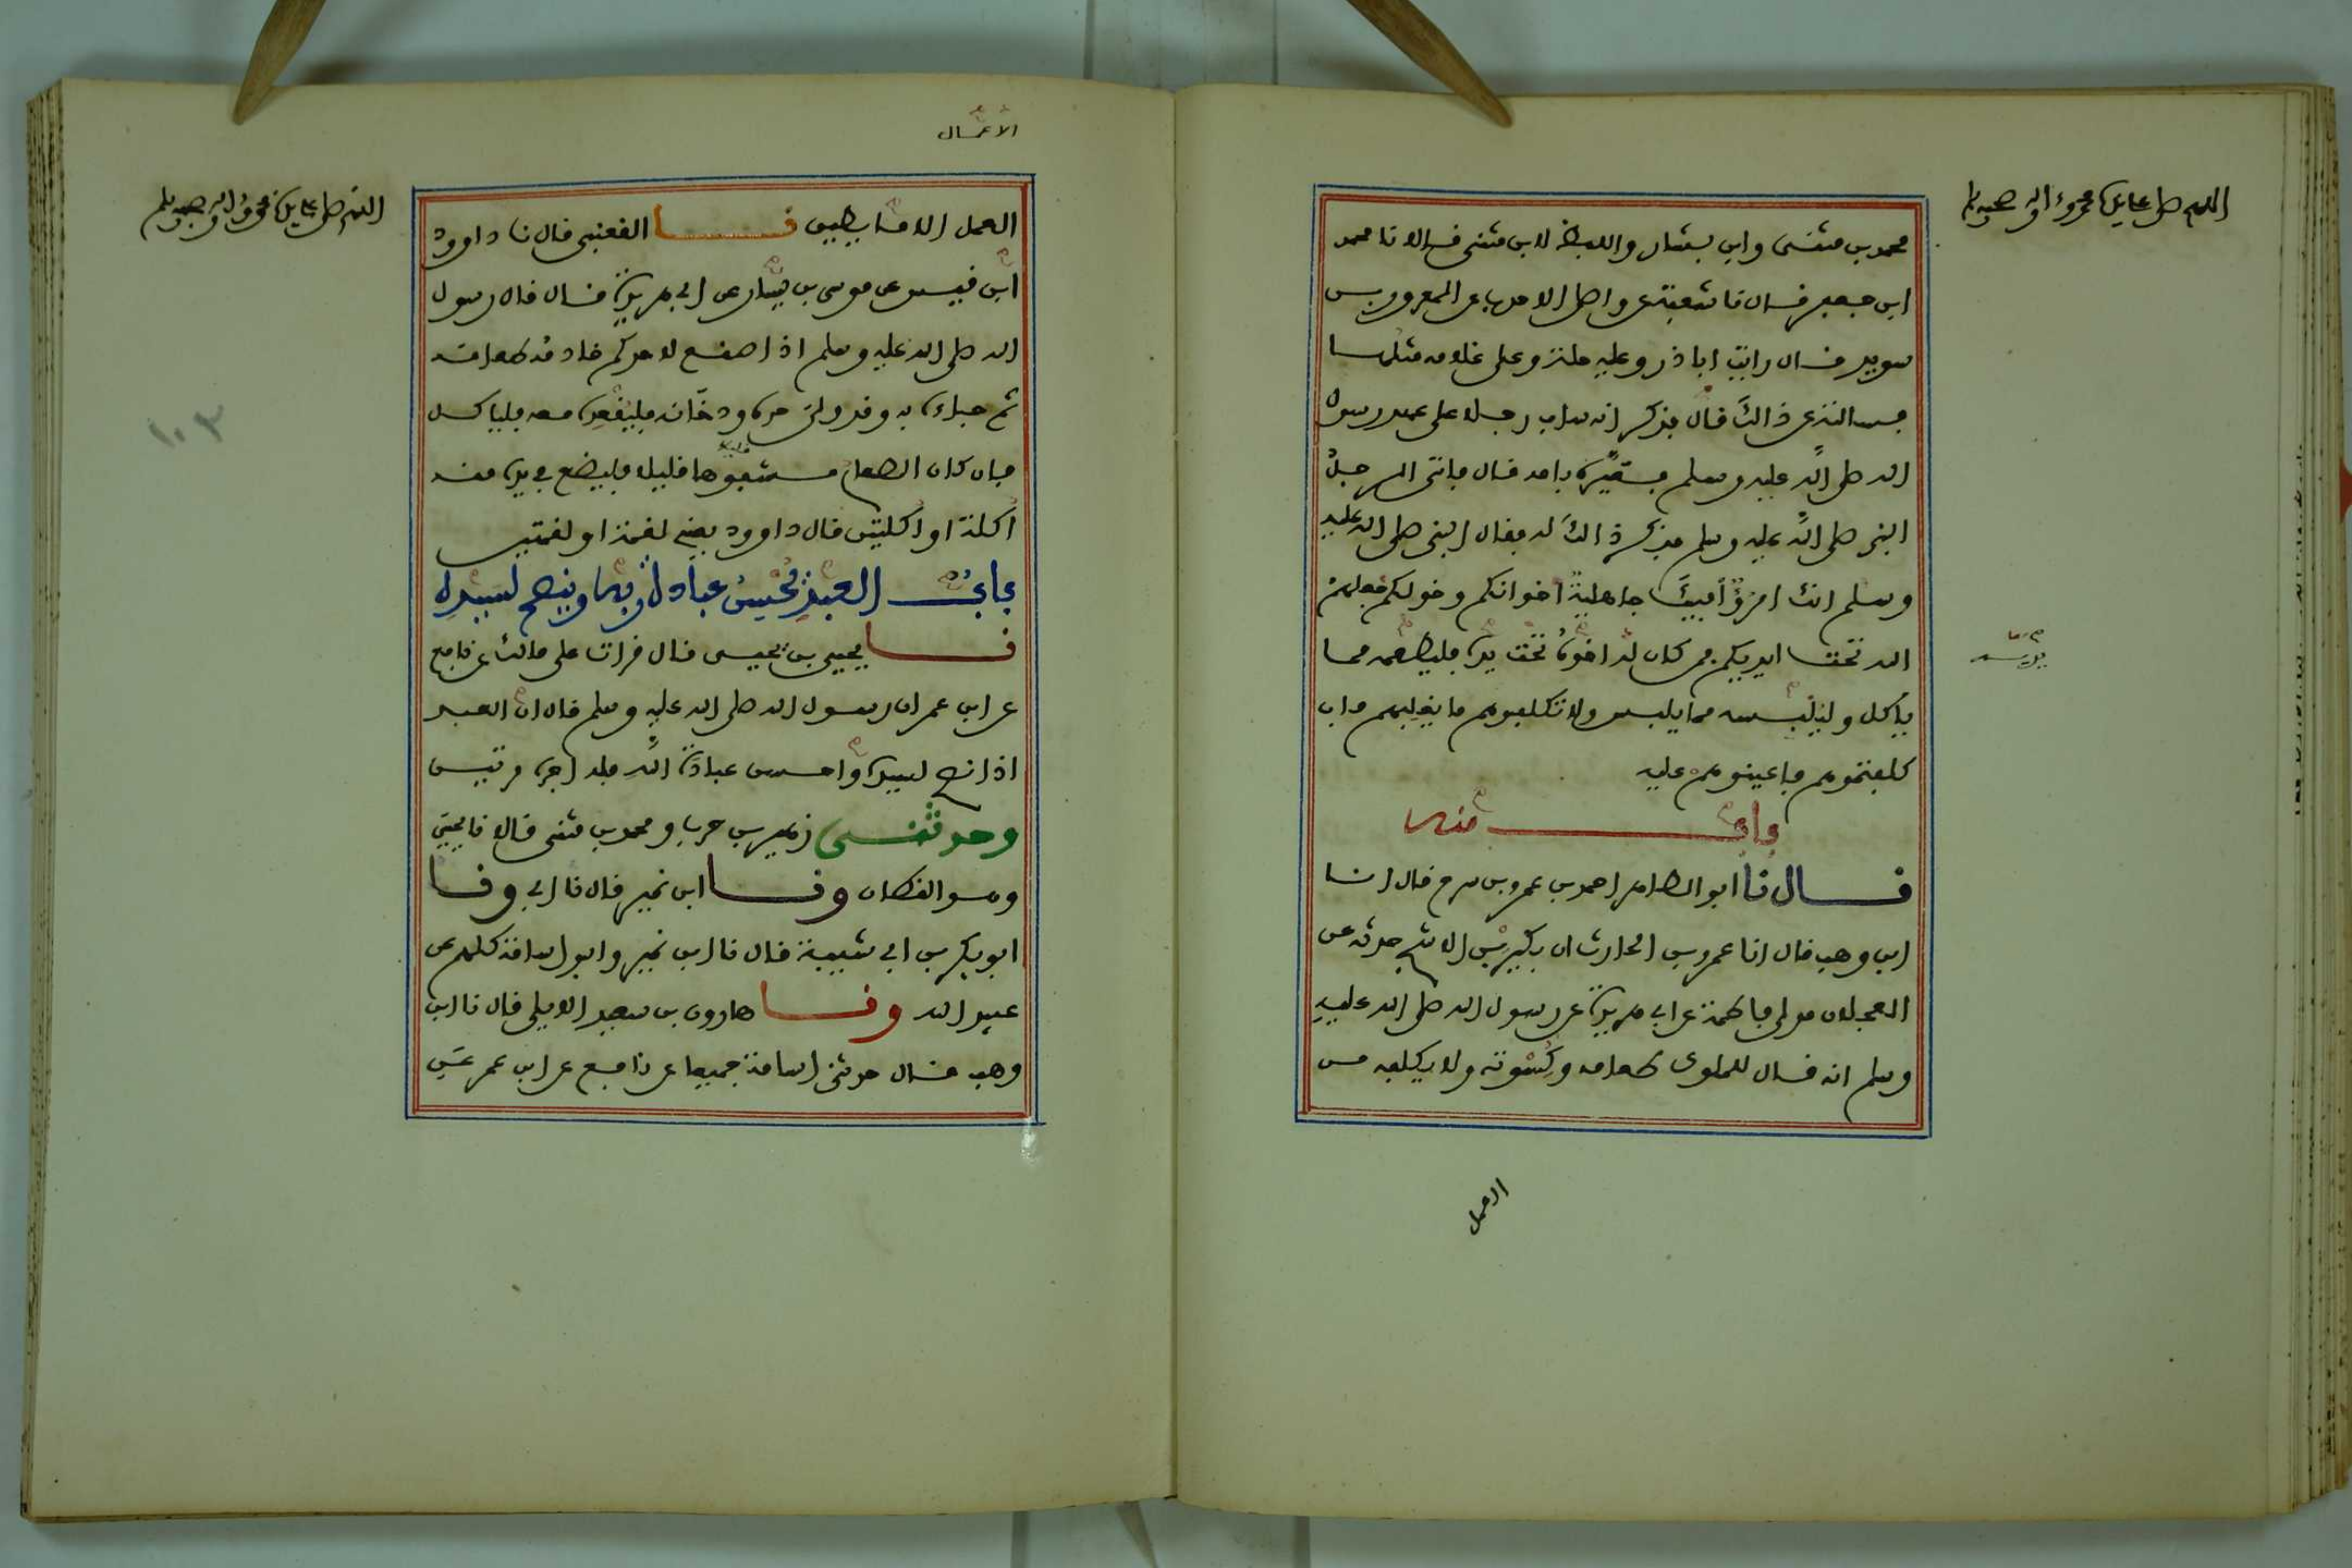 اللهم صل على سيدنا محمد وءاله وصحبه وسلم
محمد بن مثنى وابن بشار واللفظ لابن مثنى قالا نا محمد
ابن جعفر قال نا شعبة عن واصل الاحدب عن المعرور بن
سويد قال رايت ابا ذر وعليه حلة وعلى غلامه مثلها
فسالته عن ذالك قال فذكر انه ساب رجلا على عهد رسول
الله صلى الله عليه وسلم فعيره بامه قال فاتى الرجل
النبي صلى الله عليه وسلم فذكر ذالك له فقال النبي صلى الله عليه
وسلم انك امرؤ فيك جاهلية اخوانكم وخولكم جعلهم
الله تحت ايديكم فمن كان له اخوه تحت يده فليطعمه مما
ياكل وليلبسه مما يلبس ولا تكلفوهم ما يغلبهم فان
كلفتموهم فاعينوهم عليه
باب منه
قال نا ابو الطاهر احمد بن عمرو بن سرح قال انا
ابن وهب قال انا عمرو بن الحارث ان بكير بن الاشج حدثه عن
العجلان مولى فاطمة عن ابي هريرة عن رسول الله صلى الله عليه
وسلم انه قال للملوك طعامه وكسوته ولا يكلف من
العمل
الاعمال
اللهم صل على سيدنا محمد وءاله وصحبه وسلم
العمل الا ما يطيق نا القعنبي قال نا داوود
ابن قيس عن موسى بن يسار عن ابي هريرة قال قال رسول
الله صلى الله عليه وسلم اذا صنع لاحدكم خادمه طعامه
ثم جاءه به وقد ولى حره ودخانه فليقعده معه فلياكل
فان كان الطعام مشفوها قليلا فليضع في يده منه
اكلة او اكلتين قال داوود يعني لقمة او لقمتين
باب العبد يحسن عبادة ربه وينصح لسيده
نا يحيى بن يحيى قال قرات على مالك عن نافع
عن ابن عمر ان رسول الله صلى الله عليه وسلم قال ان العبد
اذا نصح لسيده واحسن عبادة الله فله اجره مرتين
وحدثني زهير بن حرب ومحمد بن مثنى قالا نا يحيى
وهو القطان ونا ابن نمير قال نا ابي ونا
ابو بكر بن ابي شيبة قال نا ابن نمير وابو اسامة كلهم عن
عبيد الله ونا هارون بن سعيد الايلي قال نا ابن
وهب قال حدثني اسامة جميعا عن نافع عن ابن عمر عن
١٠٣